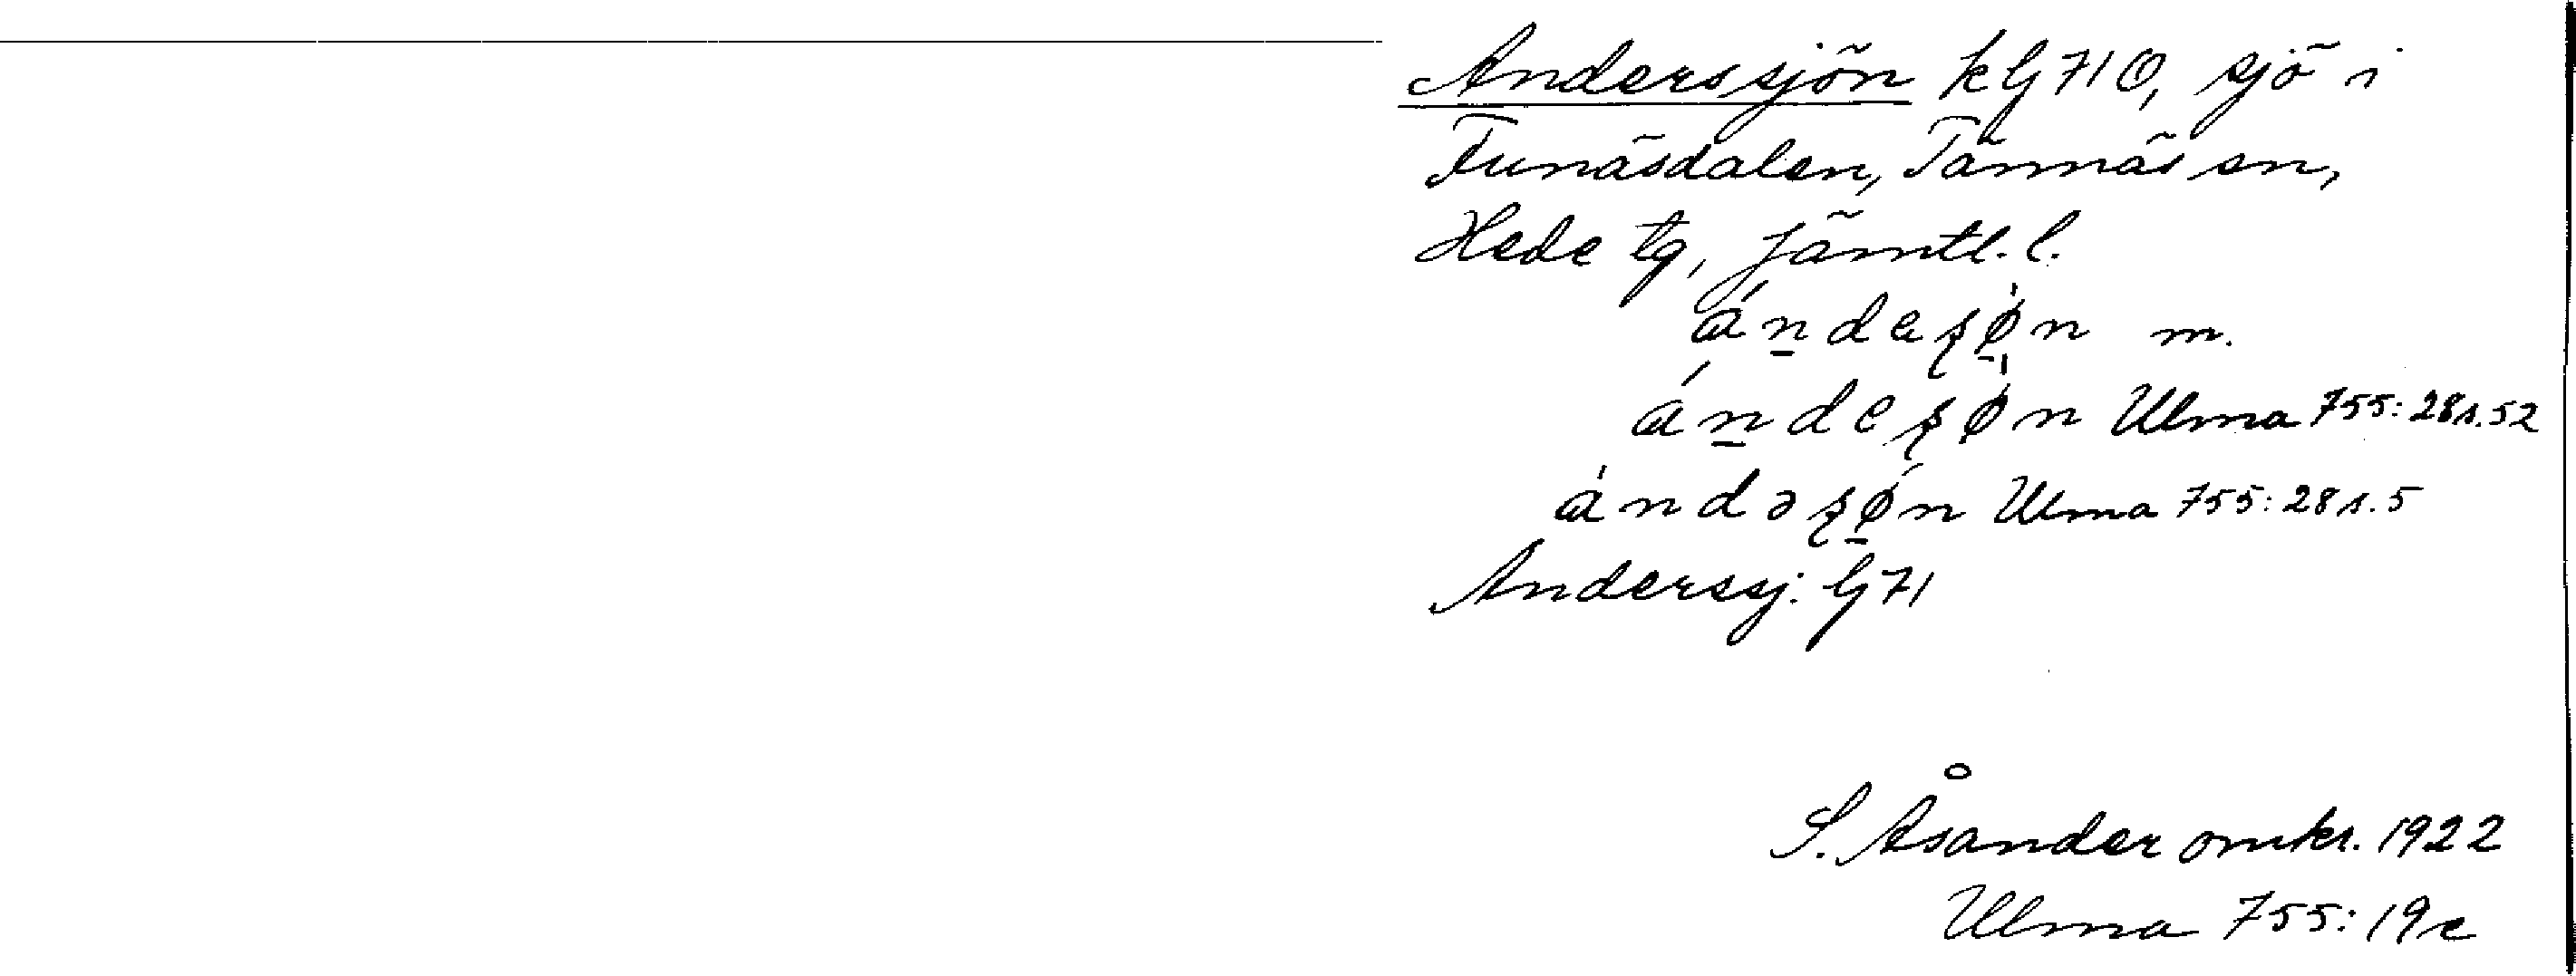 Anderssjön kG710, sjö i
Funäsdalen, Tännäs sn,
Hede tg, Jämtl. l.
án̲deʂø̲̀n m.
án̲deʂø̀n Ulma 755: 28 s. 52
àndəʂǿ̲n Ulma 755: 28 s. 5
Anderssj. G71
S. Åsander omkr. 1922
Ulma 755: 19c